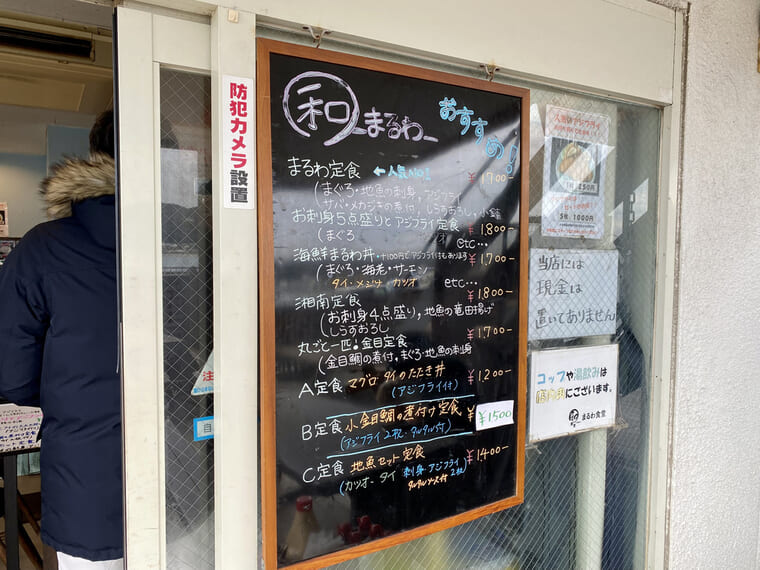 防犯カメラ設置
和
まるわ
おすすめ!
まるわ定食 ←人気NO.1! ¥1,700-
(まぐろ・地魚の刺身,アジフライ
サバ・メカジキの煮付,しらすおろし,小鉢
お刺身5点盛りとアジフライ定食 ¥1,800-
(まぐろ etc…
海鮮まるわ丼 ¥1,700-
(まぐろ・海老・サーモン
タイ・メジナ カツオ etc…
湘南定食 ¥1,800-
(お刺身4点盛り,地魚の竜田揚げ
しらすおろし
丸ごと一匹!金目定食 ¥1,700-
(金目鯛の煮付,まぐろ・地魚の刺身
A定食 マグロ タイのたたき丼 ¥1,200-
(アジフライ付)
B定食 小金目鯛の煮付け定食 ¥ ¥1500
(アジフライ2枚・タルタル付)
C定食 地魚セット定食 ¥1,400-
(カツオータイ 刺身 アジフライ2枚)
タルタルソース付
1枚 250円
5枚 1000円
当店には
現金は
置いてありません
コップや湯飲みは
にございます。
まるわ食堂
注
自